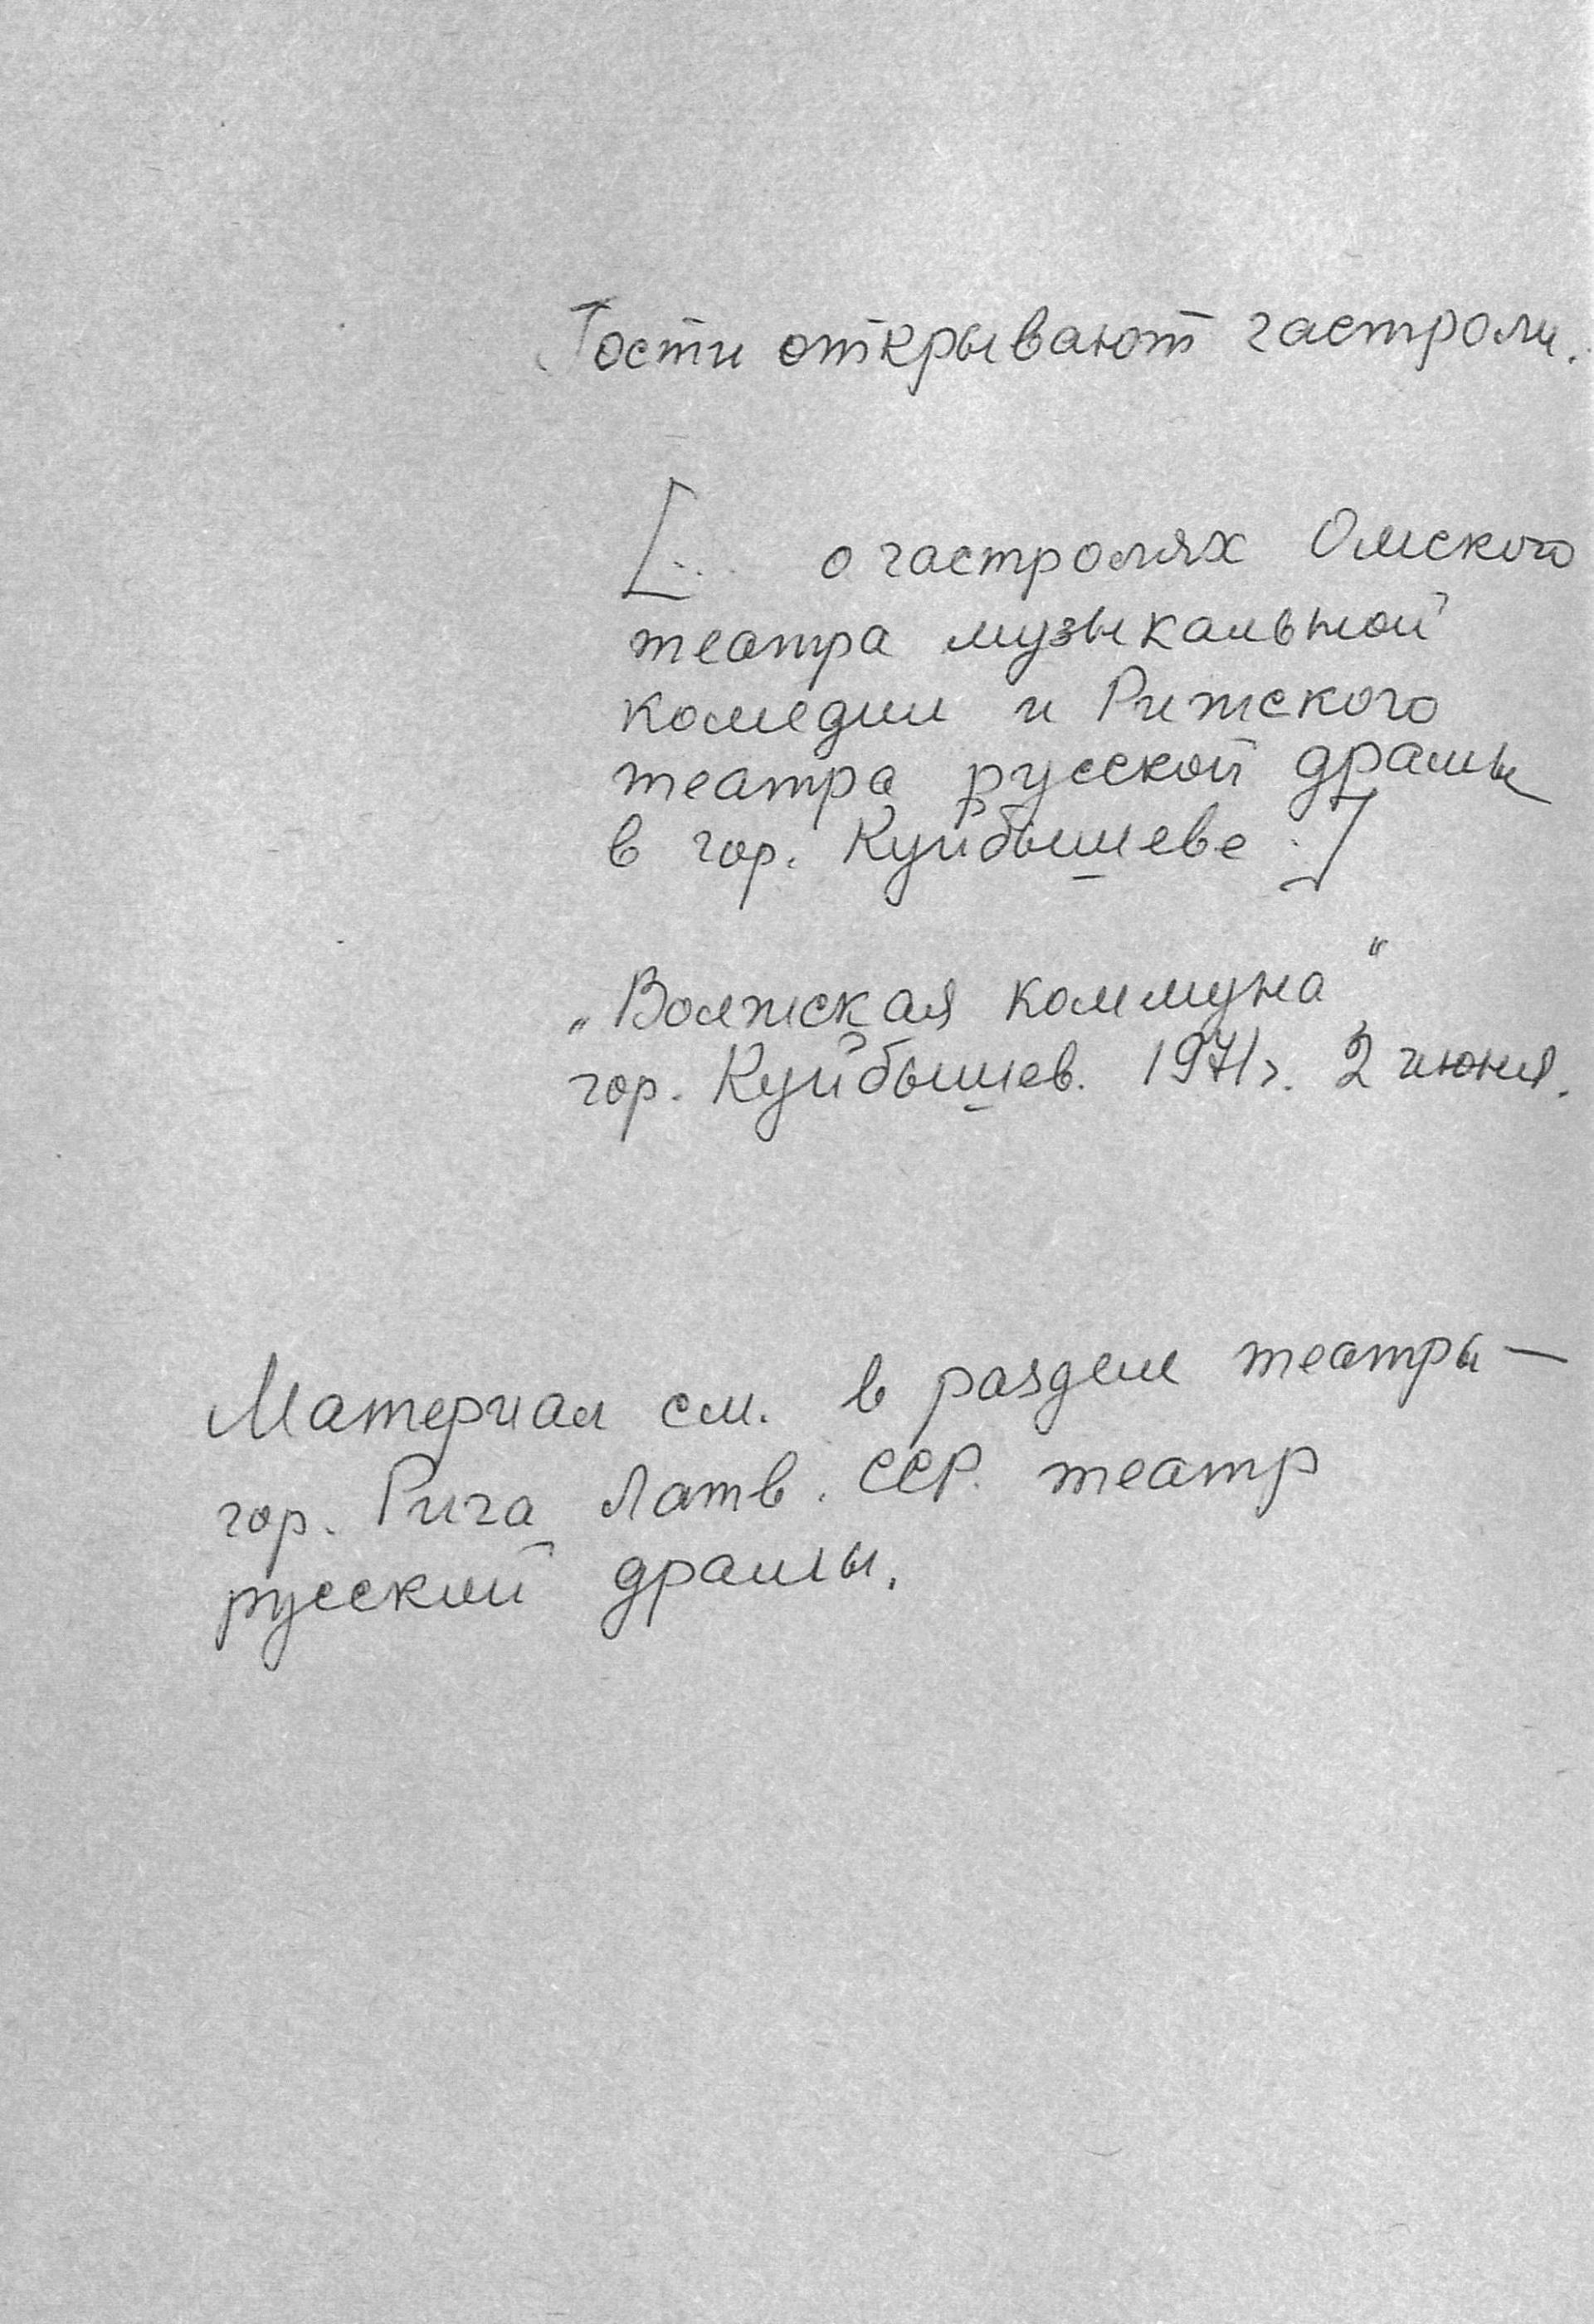 Гости открывают гастроли.
[... о гастролях Омского
театра музыкальной
комедии и Рижского
театра русской драмы
в гор. Куйбышеве.]
„Волжская коммуна"
гор. Куйбышев. 1971г. 2 июня.
Материал см. в разделе театры —
гор. Рига Латв. ССР. театр
русской драмы.